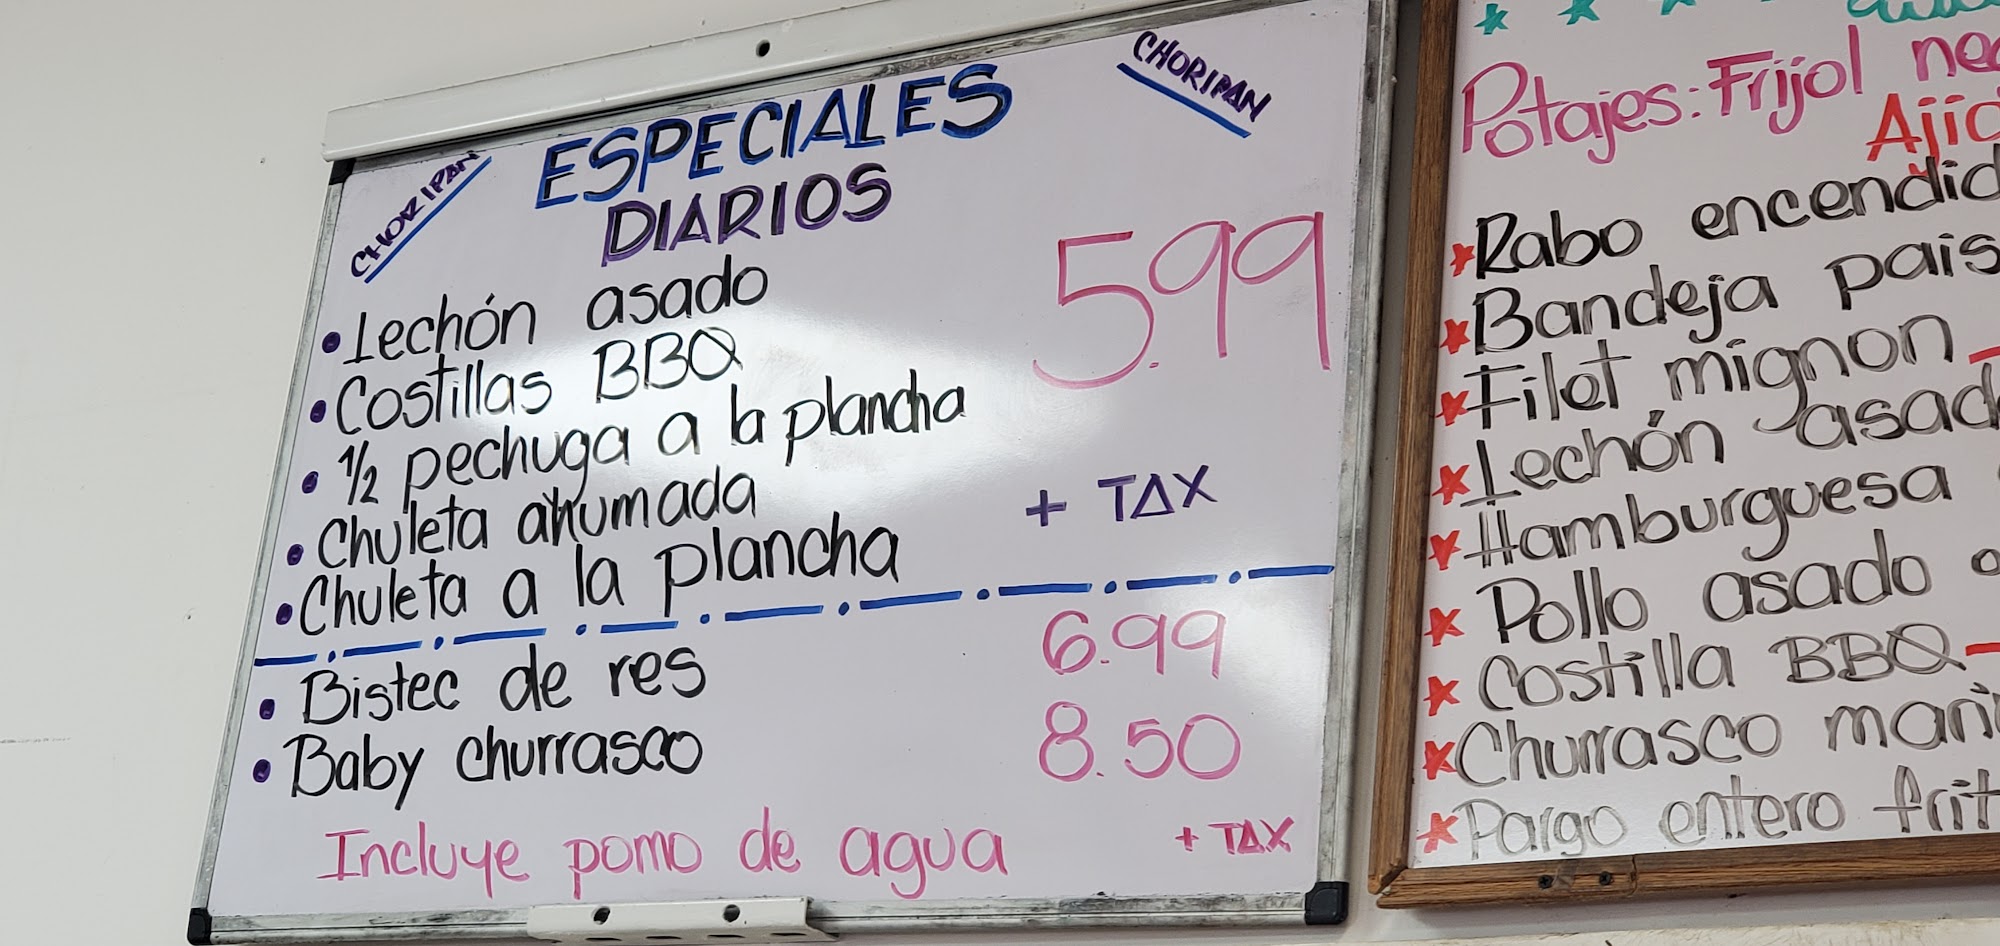 CHORIPAN
ESPECIALES
DIARIOS
CHORIPAN
• Lechón asado
• Costillas BBQ
• 1/2 pechuga a la plancha
• Chuleta ahumada
• Chuleta a la plancha
5.99
+ TAX
• Bistec de res 6.99
• Baby churrasco 8.50
Incluye pomo de agua + TAX
Potajes: Frijol
Rabo
Bandeja
Filet mignon
Lechón
Hamburguesa
Pollo asado
Costilla BBQ
Churrasco
Pargo entero